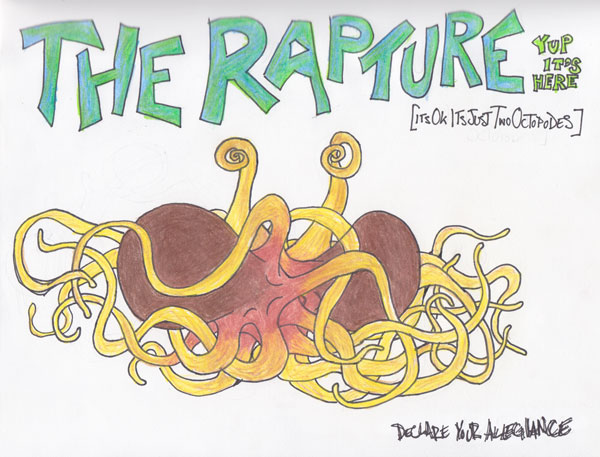 THE RAPTURE
YUP
IT'S
HERE
[ITS OK ITS JUST TWO OCTOPODES]
DECLARE YOUR ALLEGIANCE